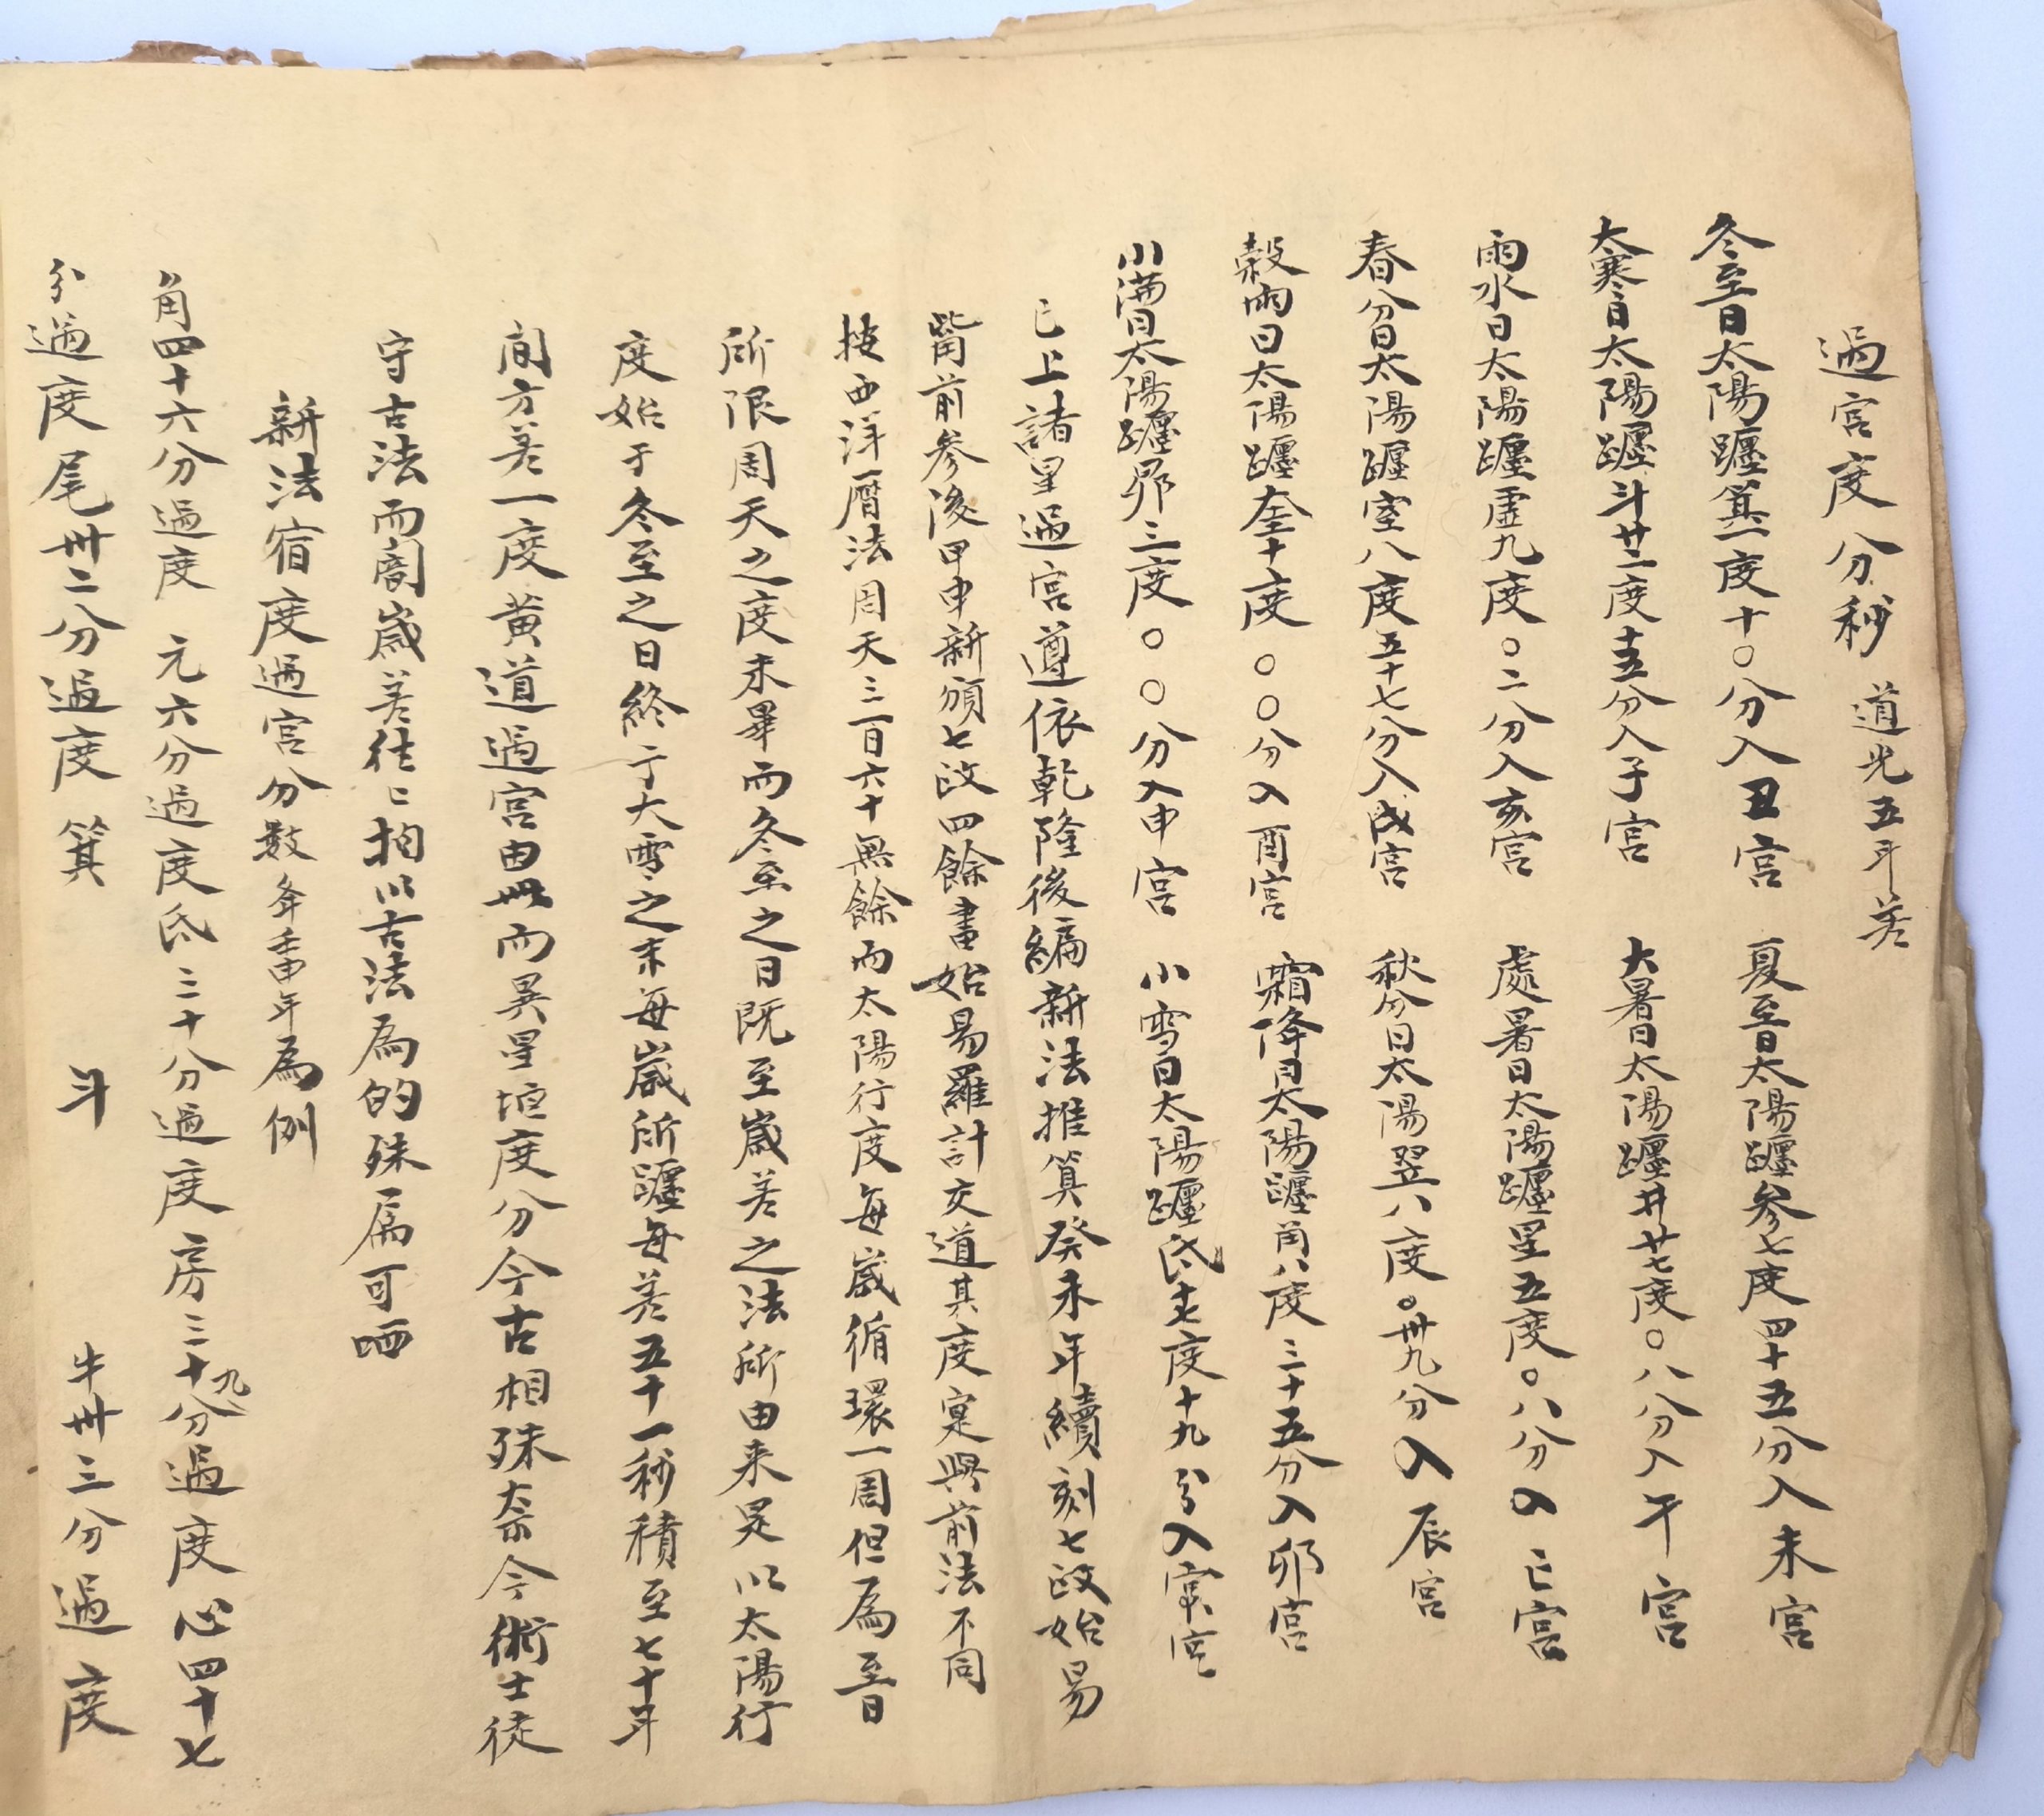 過宮度分秒 道光五年差
冬至日太陽躔箕一度十〇分入丑宮 夏至日太陽躔參七度四十五分入未宮
大寒日太陽躔斗廿二度十五分入子宮 大暑日太陽躔井廿七度〇八分入午宮
雨水日太陽躔虛九度〇二分入亥宮 處暑日太陽躔星五度〇八分入巳宮
春分日太陽躔室八度五十七分入戌宮 秋分日太陽翌八度〇卅九分入辰宮
穀雨日太陽躔奎十度〇〇分入酉宮 霜降日太陽躔角八度三十五分入卯宮
小滿日太陽躔昴三度〇〇分入申宮 小雪日太陽躔氐十七度十九分入寅宮
已上諸星過宮遵依乾隆後編新法推算癸未年續刻七政始易
觜前參後甲申新頒七政四餘書始易羅計交道其度寔與前法不同
按西洋曆法周天三百六十無餘而太陽行度每歲循環一周但為至日
所限周天之度未畢而冬至之日既至歲差之法所由来是以太陽行
度始于冬至之日終于大雪之末每歲所躔每差五十一秒積至七十年
間方差一度黃道過宮由此而異星垣度分今古相殊奈今術士徒
守古法而闇歲差往〻拘以古法為的殊屬可哂
新法宿度過宮分數 年壬申年為例
角四十六分過度 元六分過度氐三十分過度房三十九分過度心四十七
分過度尾卅二分過度箕 斗 牛卅三分過度